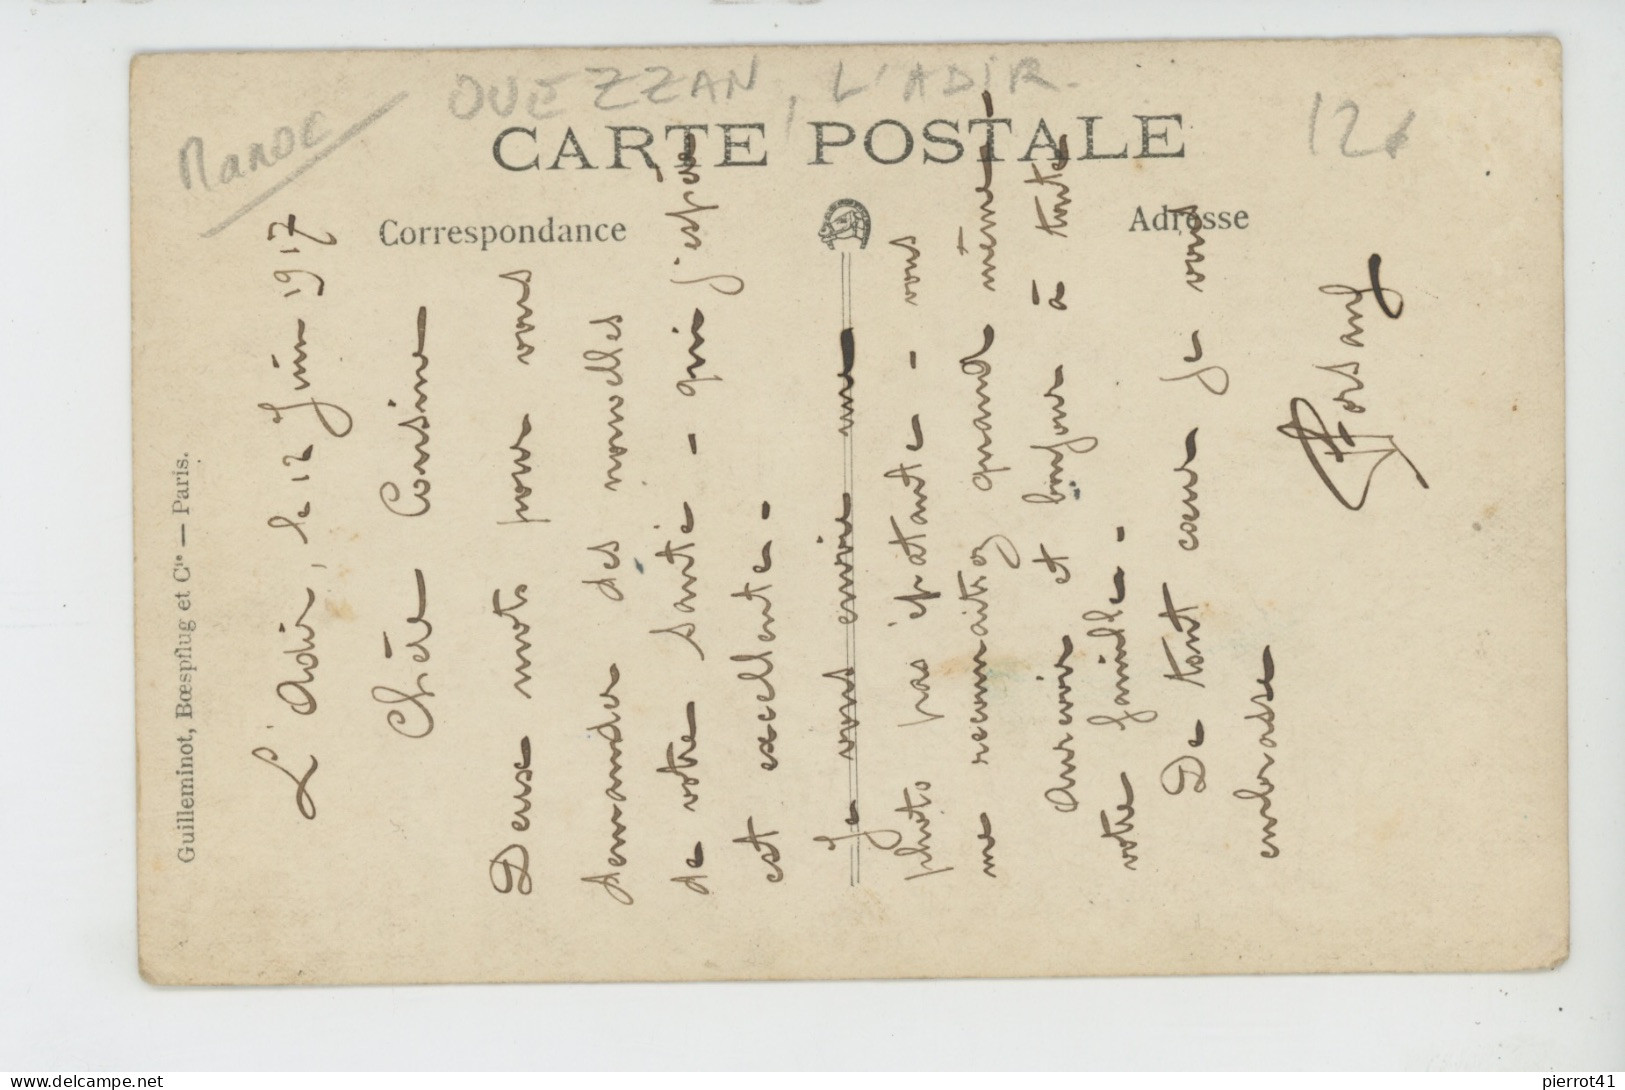 Maroc
OUEZZAN, L'ADIR.
12€
CARTE POSTALE
Correspondance
Adresse
Guilleminot, Bœspflug et Cie — Paris.
L'Adir, le 12 Juin 1917
Chère Cousine
Deux mots pour vous
demander des nouvelles
de votre santé - qui j'espère
est excellente -
Je vous envoie une
photo pas épatante - vous
me reconnaitrez quand même -
Aurevoir et bonjour à toute
votre famille -
De tout cœur je vous
embrasse
pierrot41